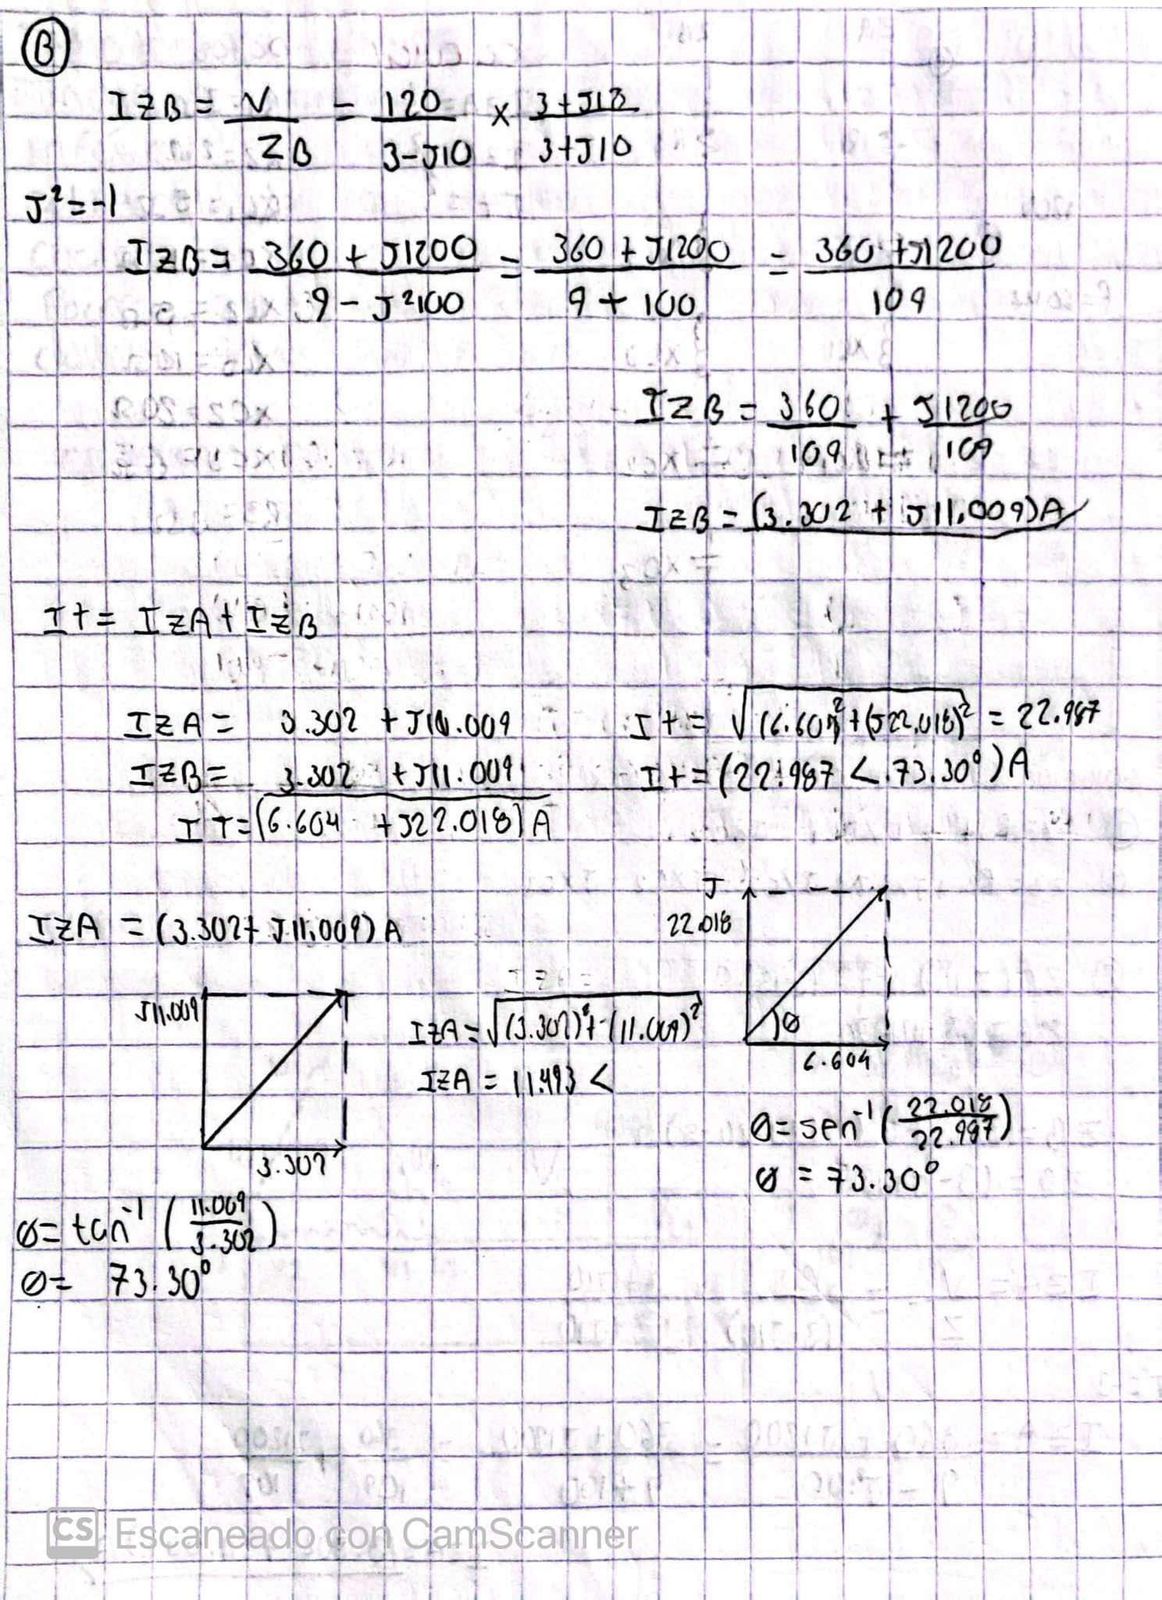 B
IZB = V/ZB = 120/3-J10 x 3+J10/3+J10
J²=-1
IZB = 360 + J1200/9 - J²100 = 360 + J1200/9 + 100 = 360 + J1200/109
IZB = 360/109 + J1200/109
IZB = (3.302 + J11.009)A
It = IZA + IZB
IZA = 3.302 + J11.009
IZB = 3.302 + J11.009
IT = (6.604 + J22.018)A
It = √(6.604)²+(J22.018)² = 22.987
It = (22.987 < 73.30°)A
IZA = (3.302 + J11.009)A
J11.009
3.302
IZA = √(3.302)² + (11.009)²
IZA = 11.493 <
J
22.018
θ
6.604
θ = sen⁻¹(22.018/22.987)
θ = 73.30°
θ = tan⁻¹ (11.009/3.302)
θ = 73.30°
CS Escaneado con CamScanner